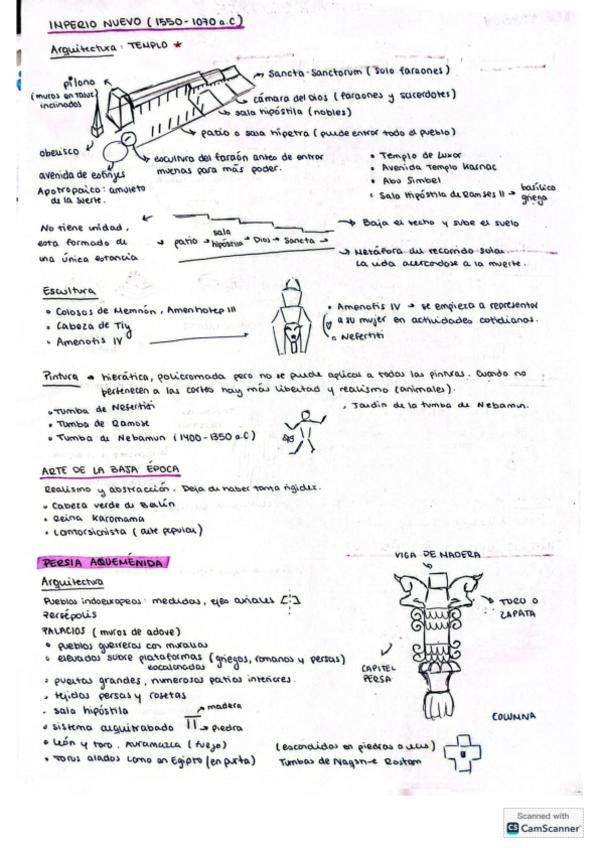 IMPERIO NUEVO (1550-1070 a.C)
Arquitectura: TEMPLO *
pilono
(muros en talud
inclinados
Sancta-Sanctorum (Solo faraones)
cámara del Dios (faraones y sacerdotes)
sala hipóstila (nobles)
patio o sala hípetra (puede entrar todo el pueblo)
obelisco
avenida de esfinges
Apotropaico: amuleto
de la suerte.
escultura del faraón antes de entrar
muchas para más poder.
• Templo de Luxor
• Avenida Templo Karnac
• Abu Simbel
• Sala Hipóstila de Ramses II → basílica
griega
No tiene unidad,
esta formado de
una única estancia
patio → sala hipóstila → Dios → Sancta →
→ Baja el techo y sube el suelo
→ Metáfora del recorrido solar.
La vida acercándose a la muerte.
Escultura
• Colosos de Memnón, Amenhotep III
• Cabeza de Tiy
• Amenotis IV
• Amenotis IV → se empieza a representar
a su mujer en actividades cotidianas.
• Nefertiti
Pintura → hierática, policromada pero no se puede aplicar a todas las pinturas. Cuando no
pertenecen a las cortes hay más libertad y realismo (animales).
• Tumba de Nefertiti
• Tumba de Ramose
• Tumba de Nebamun (1400-1350 a.C)
. Jardín de la tumba de Nebamun.
ARTE DE LA BAJA ÉPOCA
Realismo y abstracción. Deja de haber tanta rigidez.
• Cabeza verde de Berlín
• Reina Karomama
• Contorsionista (arte popular)
PERSIA AQUEMÉNIDA
Arquitectura
Pueblos indoeuropeos: medidas, ejes axiales
Persépolis
PALACIOS (muros de adove)
• pueblos guerreros con murallas
• elevados sobre plataformas (griegos, romanos y persas)
escalonadas
• puertas grandes, numerosos patios interiores.
• tejidos persas y rosetas
• sala hipóstila
• sistema arquitrabado
madera
piedra
• León y toro. Auramazca (fuego)
• Toros alados como en Egipto (en puerta)
VIGA DE MADERA
TORO O
ZAPATA
CAPITEL
PERSA
COLUMNA
(escondidas en piedras
Tumbas de Nagsn-e Rostam
Scanned with
CS CamScanner